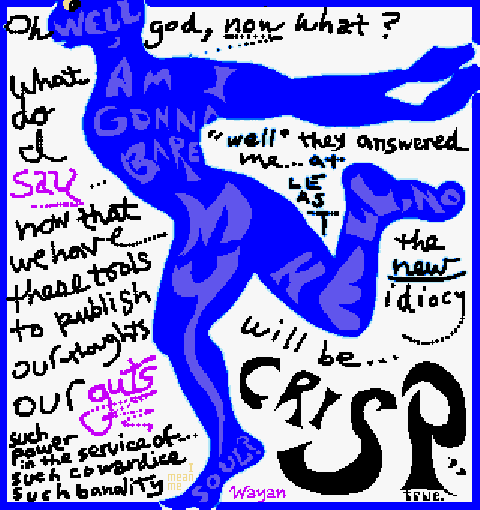 Oh god, now what?
What
do
I
say...
now that
we have......
these tools
to publish
our thoughts
our guts
such
power
in the service of...
such cowardice
such banality
I
mean
me
WELL,
AM I
GONNA
BARE
MY
SOUL?
HELL, NO
"well" they answered
me... at
LE
AS
T
the
new
idiocy
will be...
CRISP
true.
Wayan